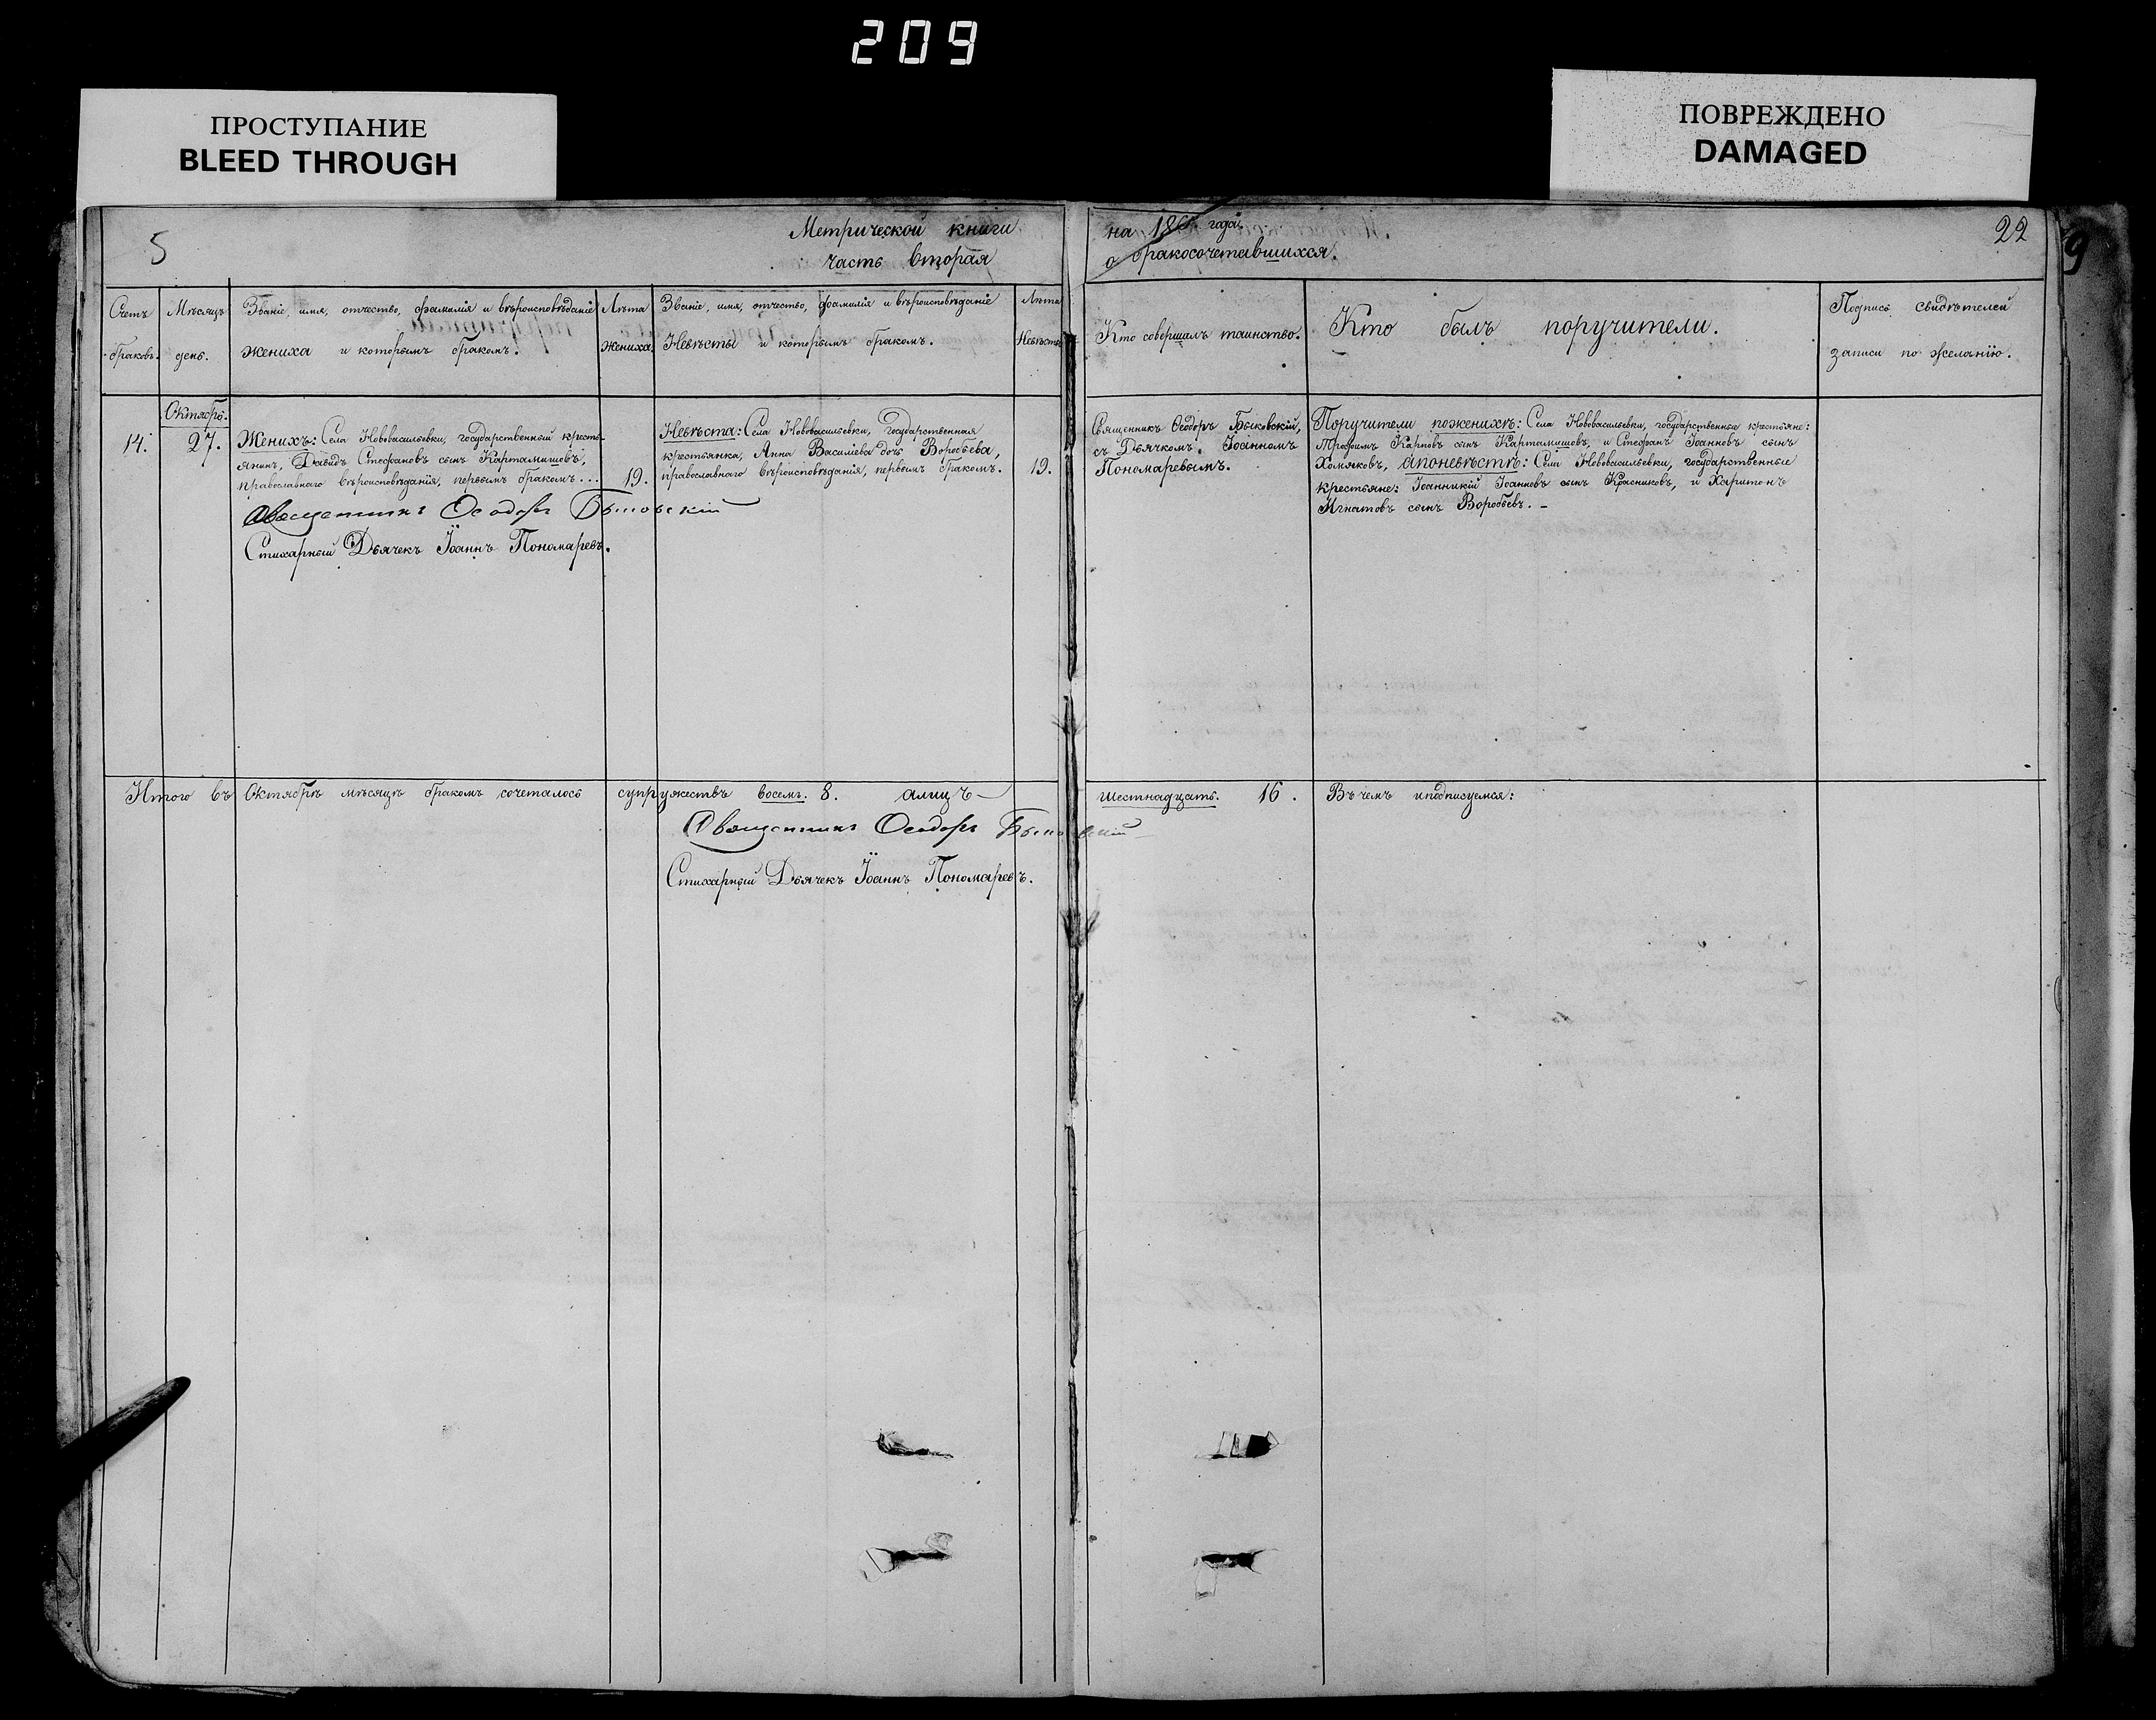 209
ПРОСТУПАНИЕ
BLEED THROUGH
ПОВРЕЖДЕНО
DAMAGED
5
Метрической книги
часть вторая
на 186 года
о бракосочетавшихся.
22
9
Счетъ
браковъ.
Мѣсяцъ
день.
Званіе, имя, отчество, фамилія и вѣроисповѣданіе
жениха и которымъ бракомъ.
Лѣта
жениха.
Званіе, имя, отчество, фамилія и вѣроисповѣданіе
Невѣсты и которымъ бракомъ.
Лѣта
Невѣсты
Кто совершалъ таинство.
Кто былъ поручители.
Подпись свидѣтелей
записи по желанію.
14.
Октябрь.
27.
Женихъ: Села Нововасильевки, государственный кресть-
янинъ, Давидъ Стефановъ сынъ Картамышовъ,
православнаго вѣроисповѣданія, первымъ бракомъ...
19.
Священникъ Ѳеодоръ Быковскій
Стихарный Дьячекъ Іоаннъ Пономаревъ.
Невѣста: Села Нововасильевки, государственная
крестьянка, Анна Василіева дочь Воробьева,
православнаго вѣроисповѣданія, первымъ бракомъ.
19.
Священникъ Ѳеодоръ Быковскій,
съ Дьячкомъ Іоанномъ
Пономаревымъ.
Поручители поженихѣ: Села Нововасильевки, государственные крестьяне:
Трофимъ Карповъ сынъ Картамышовъ, и Стефанъ Іоанновъ сынъ
Хомяковъ, апоневѣстѣ: Села Нововасильевки, государственные
крестьяне: Іоанникій Іоанновъ сынъ Красниковъ, и Харитонъ
Игнатовъ сынъ Воробьевъ. –
Итого въ Октябрѣ мѣсяцѣ бракомъ сочеталось супружествъ восемь. 8. алицъ – шестнадцать. 16. Въ чемъ иподписуемся:
Священникъ Ѳеодоръ Быковскій
Стихарный Дьячекъ Іоаннъ Пономаревъ.